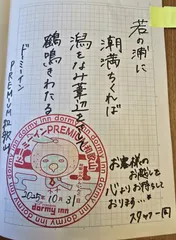 若の浦に
潮満ちくれば
潟をなみ葦辺をさして
鶴鳴きわたる
ドーミーイン
PREMIUM和歌山
お客様の
お越しを
心よりお待ちして
おります…
スタッフ一同
dormy inn
ドーミーインPREMIUM和歌山
2025年10月31日
dormy inn